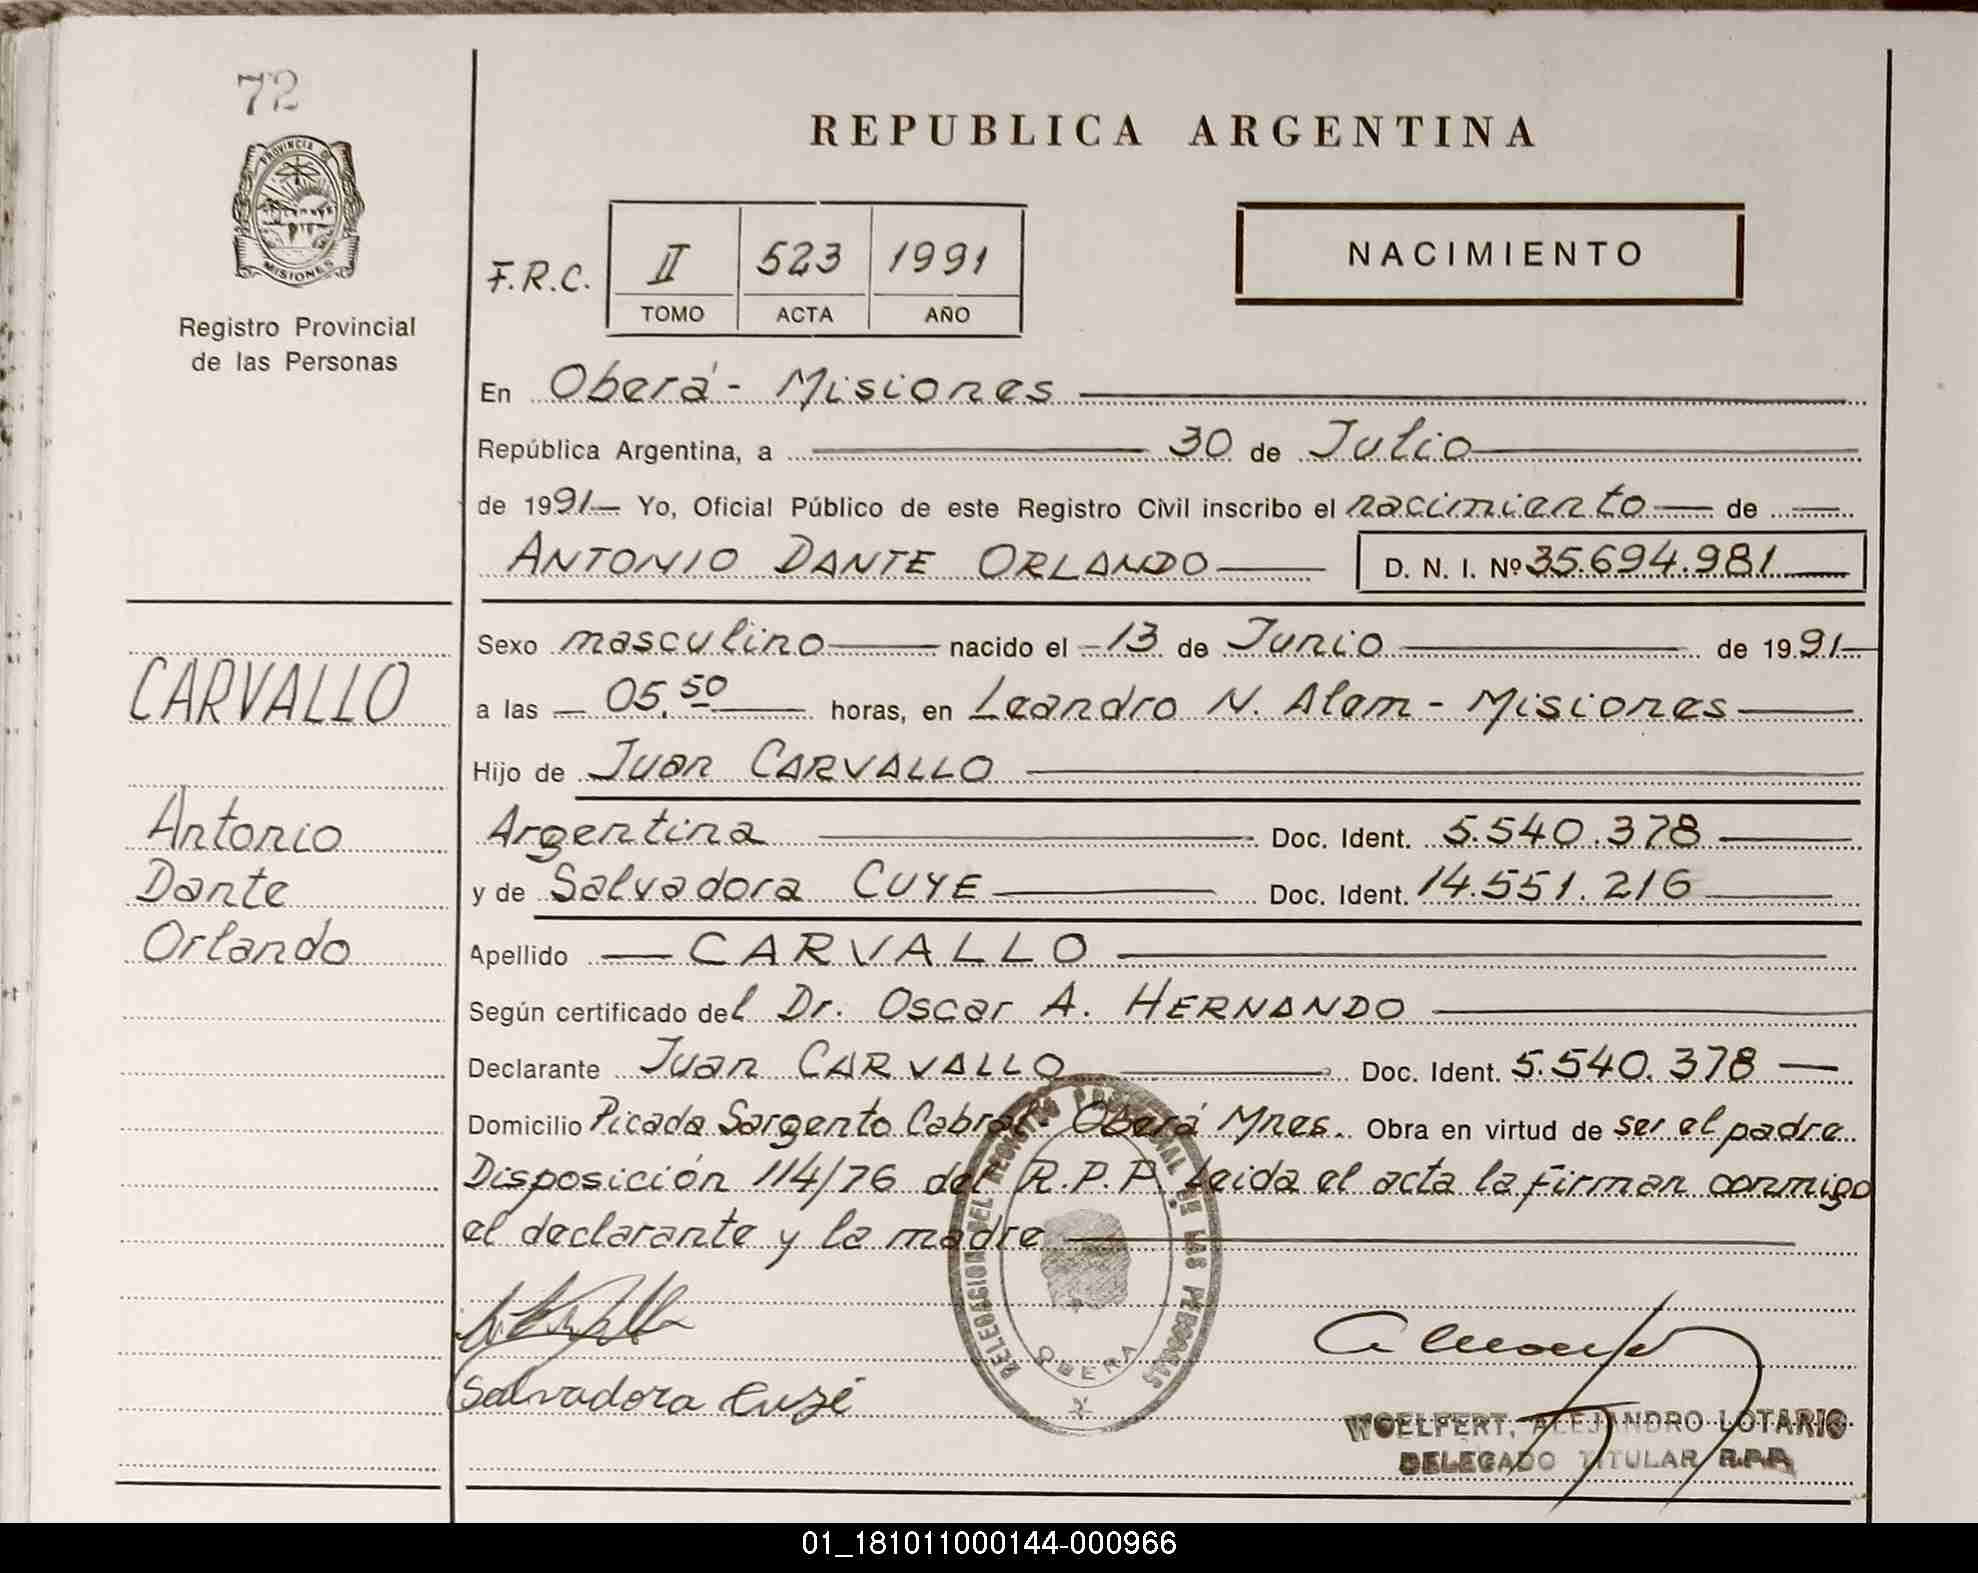 72
PROVINCIA DE
MISIONES
Registro Provincial
de las Personas
REPUBLICA ARGENTINA
F.R.C. II 523 1991
TOMO ACTA AÑO
NACIMIENTO
En Oberá - Misiones
República Argentina, a 30 de Julio
de 1991 Yo, Oficial Público de este Registro Civil inscribo el nacimiento de
ANTONIO DANTE ORLANDO D. N. I. Nº 35.694.981
Sexo masculino nacido el 13 de Junio de 1991
a las 05,50 horas, en Leandro N. Alem - Misiones
Hijo de Juan CARVALLO
Argentina Doc. Ident. 5.540.378
y de Salvadora CUYE Doc. Ident. 14.551.216
Apellido CARVALLO
Según certificado del Dr. Oscar A. HERNANDO
Declarante Juan CARVALLO Doc. Ident. 5.540.378
Domicilio Picada Sargento Cabral. Oberá Mnes. Obra en virtud de ser el padre
Disposición 114/76 del R.P.P. Leida el acta la firman conmigo
el declarante y la madre
CARVALLO
Antonio
Dante
Orlando
DELEGACION DEL REGISTRO PROVINCIAL DE LAS PERSONAS
OBERA
Salvadora Cuyé
WOELFERT, ALEJANDRO LOTARIO
DELEGADO TITULAR R.P.P.
01_181011000144-000966